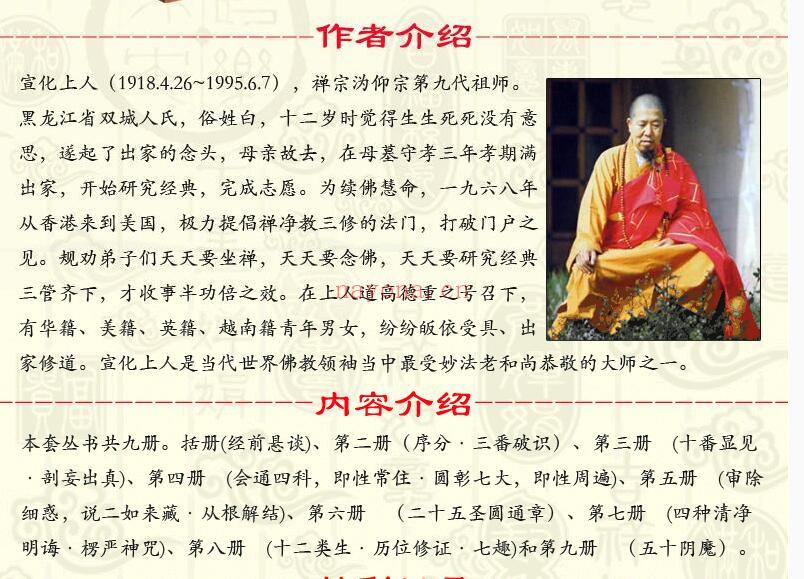 作者介绍
宣化上人（1918.4.26~1995.6.7），禅宗沩仰宗第九代祖师。
黑龙江省双城人氏，俗姓白，十二岁时觉得生生死死没有意
思，遂起了出家的念头，母亲故去，在母墓守孝三年孝期满
出家，开始研究经典，完成志愿。为续佛慧命，一九六八年
从香港来到美国，极力提倡禅净教三修的法门，打破门户之
见。规劝弟子们天天要坐禅，天天要念佛，天天要研究经典
三管齐下，才收事半功倍之效。在上人道高德重之号召下，
有华籍、美籍、英籍、越南籍青年男女，纷纷皈依受具、出
家修道。宣化上人是当代世界佛教领袖当中最受妙法老和尚恭敬的大师之一。
内容介绍
本套丛书共九册。括册(经前悬谈)、第二册（序分·三番破识）、第三册 (十番显见
·剖妄出真)、第四册 (会通四科，即性常住·圆彰七大，即性周遍)、第五册 (审除
细惑，说二如来藏·从根解结)、第六册 （二十五圣圆通章）、第七册 (四种清净
明诲·楞严神咒)、第八册 (十二类生·历位修证·七趣)和第九册 （五十阴魔）。